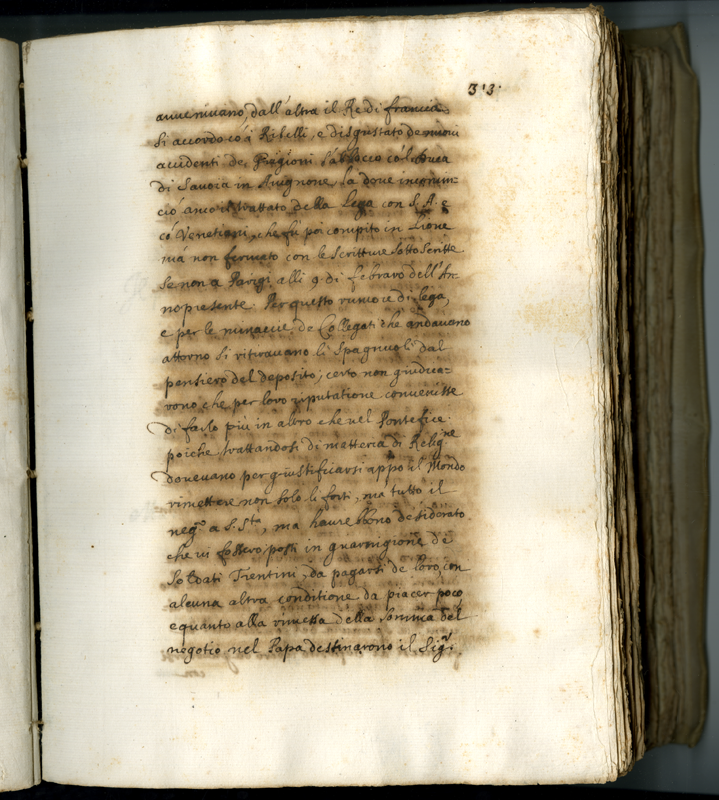 313.
auueniuano, dall'altra il Re di francia
si accordò cò à Ribelli, e disgustato de nuoui
accidenti de Grigioni s'abboccò cò l Duca
di Sauoia in Auignone là doue incomin=
ciò anco il trattato della Lega con S. A. e
cò Venetiani, che fù poi compito in Lione
mà non fermato con le scritture sottoscritte
se non a Parigi alli 9. di febraro dell'An=
no presente. Per questo rumore di lega,
e per le minaccie de Collegati che andauano
attorno si ritirauano li Spagnuoli dal
pensiero del deposito; certo non giudica=
uono che per loro riputatione conuenisse
di farlo più in altro che nel Pontefice.
poiche trattandosi di matteria di Relig.ne
doueuano per giustificiarsi appo il Mondo
rimettere non solo li forti, mà tutto il
neg.o a S. S.tà, ma haurebbono desiderato
che ui fossero posti in guarnigione de
Soldati Trentini, da pagarsi de loro, con
alcuna altra conditione da piacer poco,
e quanto alla rimessa della somma del
negotio nel Papa destinarono il Sig.r
con